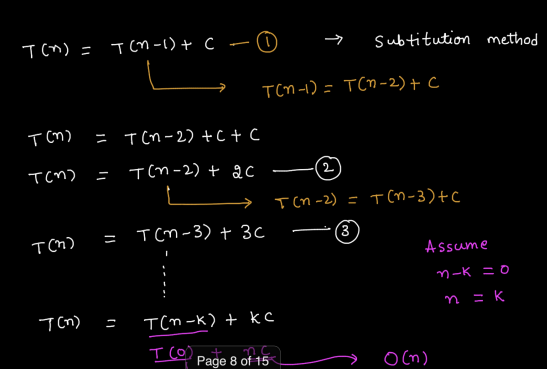 T(n) = T(n-1) + C — ① → Subtitution method
T(n-1) = T(n-2) + C
T(n) = T(n-2) + C + C
T(n) = T(n-2) + 2C — ②
T(n-2) = T(n-3) + C
T(n) = T(n-3) + 3C — ③
Assume
n-k = 0
n = k
T(n) = T(n-k) + kC
T(0) + nC → O(n)
Page 8 of 15